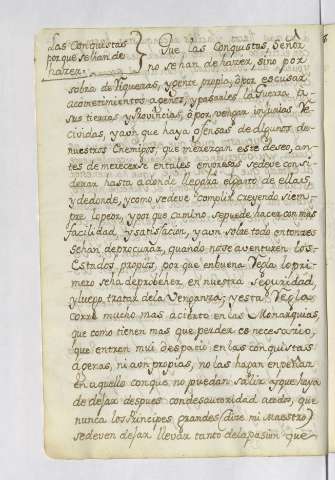 Las Conquistas
por que se han de
hazer.
Que las Conquistas, Señor
no se han de hazer, sino por
sobra de riquezas, y gente propia, ò por escusar
acometimientos agenos, y pasarles la Guerra à
sus tierras y Provincias, ò por vengar injurias Re-
cividas, y aun que haya ofensas de algunos de
nuestros Enemigos, que merezcan este deseo, an-
tes de meterse en tales empresas se deve consi-
derar hasta adonde llegará el gasto de ellas,
y de donde, y como se deve complir creyendo siem-
pre lo peor, y por que camino se puede hacer con mas
facilidad y satisfacion, y aun sobre todo entonzes
se han de procurar, quando no se aventuren los
Estados propios, por que en buena Regla lo pri-
mero se ha de probeher en nuestra seguridad,
y luego tratar de la Venganza; y esta Regla
corre mucho mas acierto en las Monarquias,
que como tienen mas que perder es necesario,
que entren mui despacio en las conquistas
ageras, ni aun propias, no las hagan en peñan
en aquello con que no puedan salir, y que haya
de dejar despues con desautoridad acedos, que
nunca los Principes grandes (dice mi Maestro)
se deven dejar llevar tanto de la pasion que